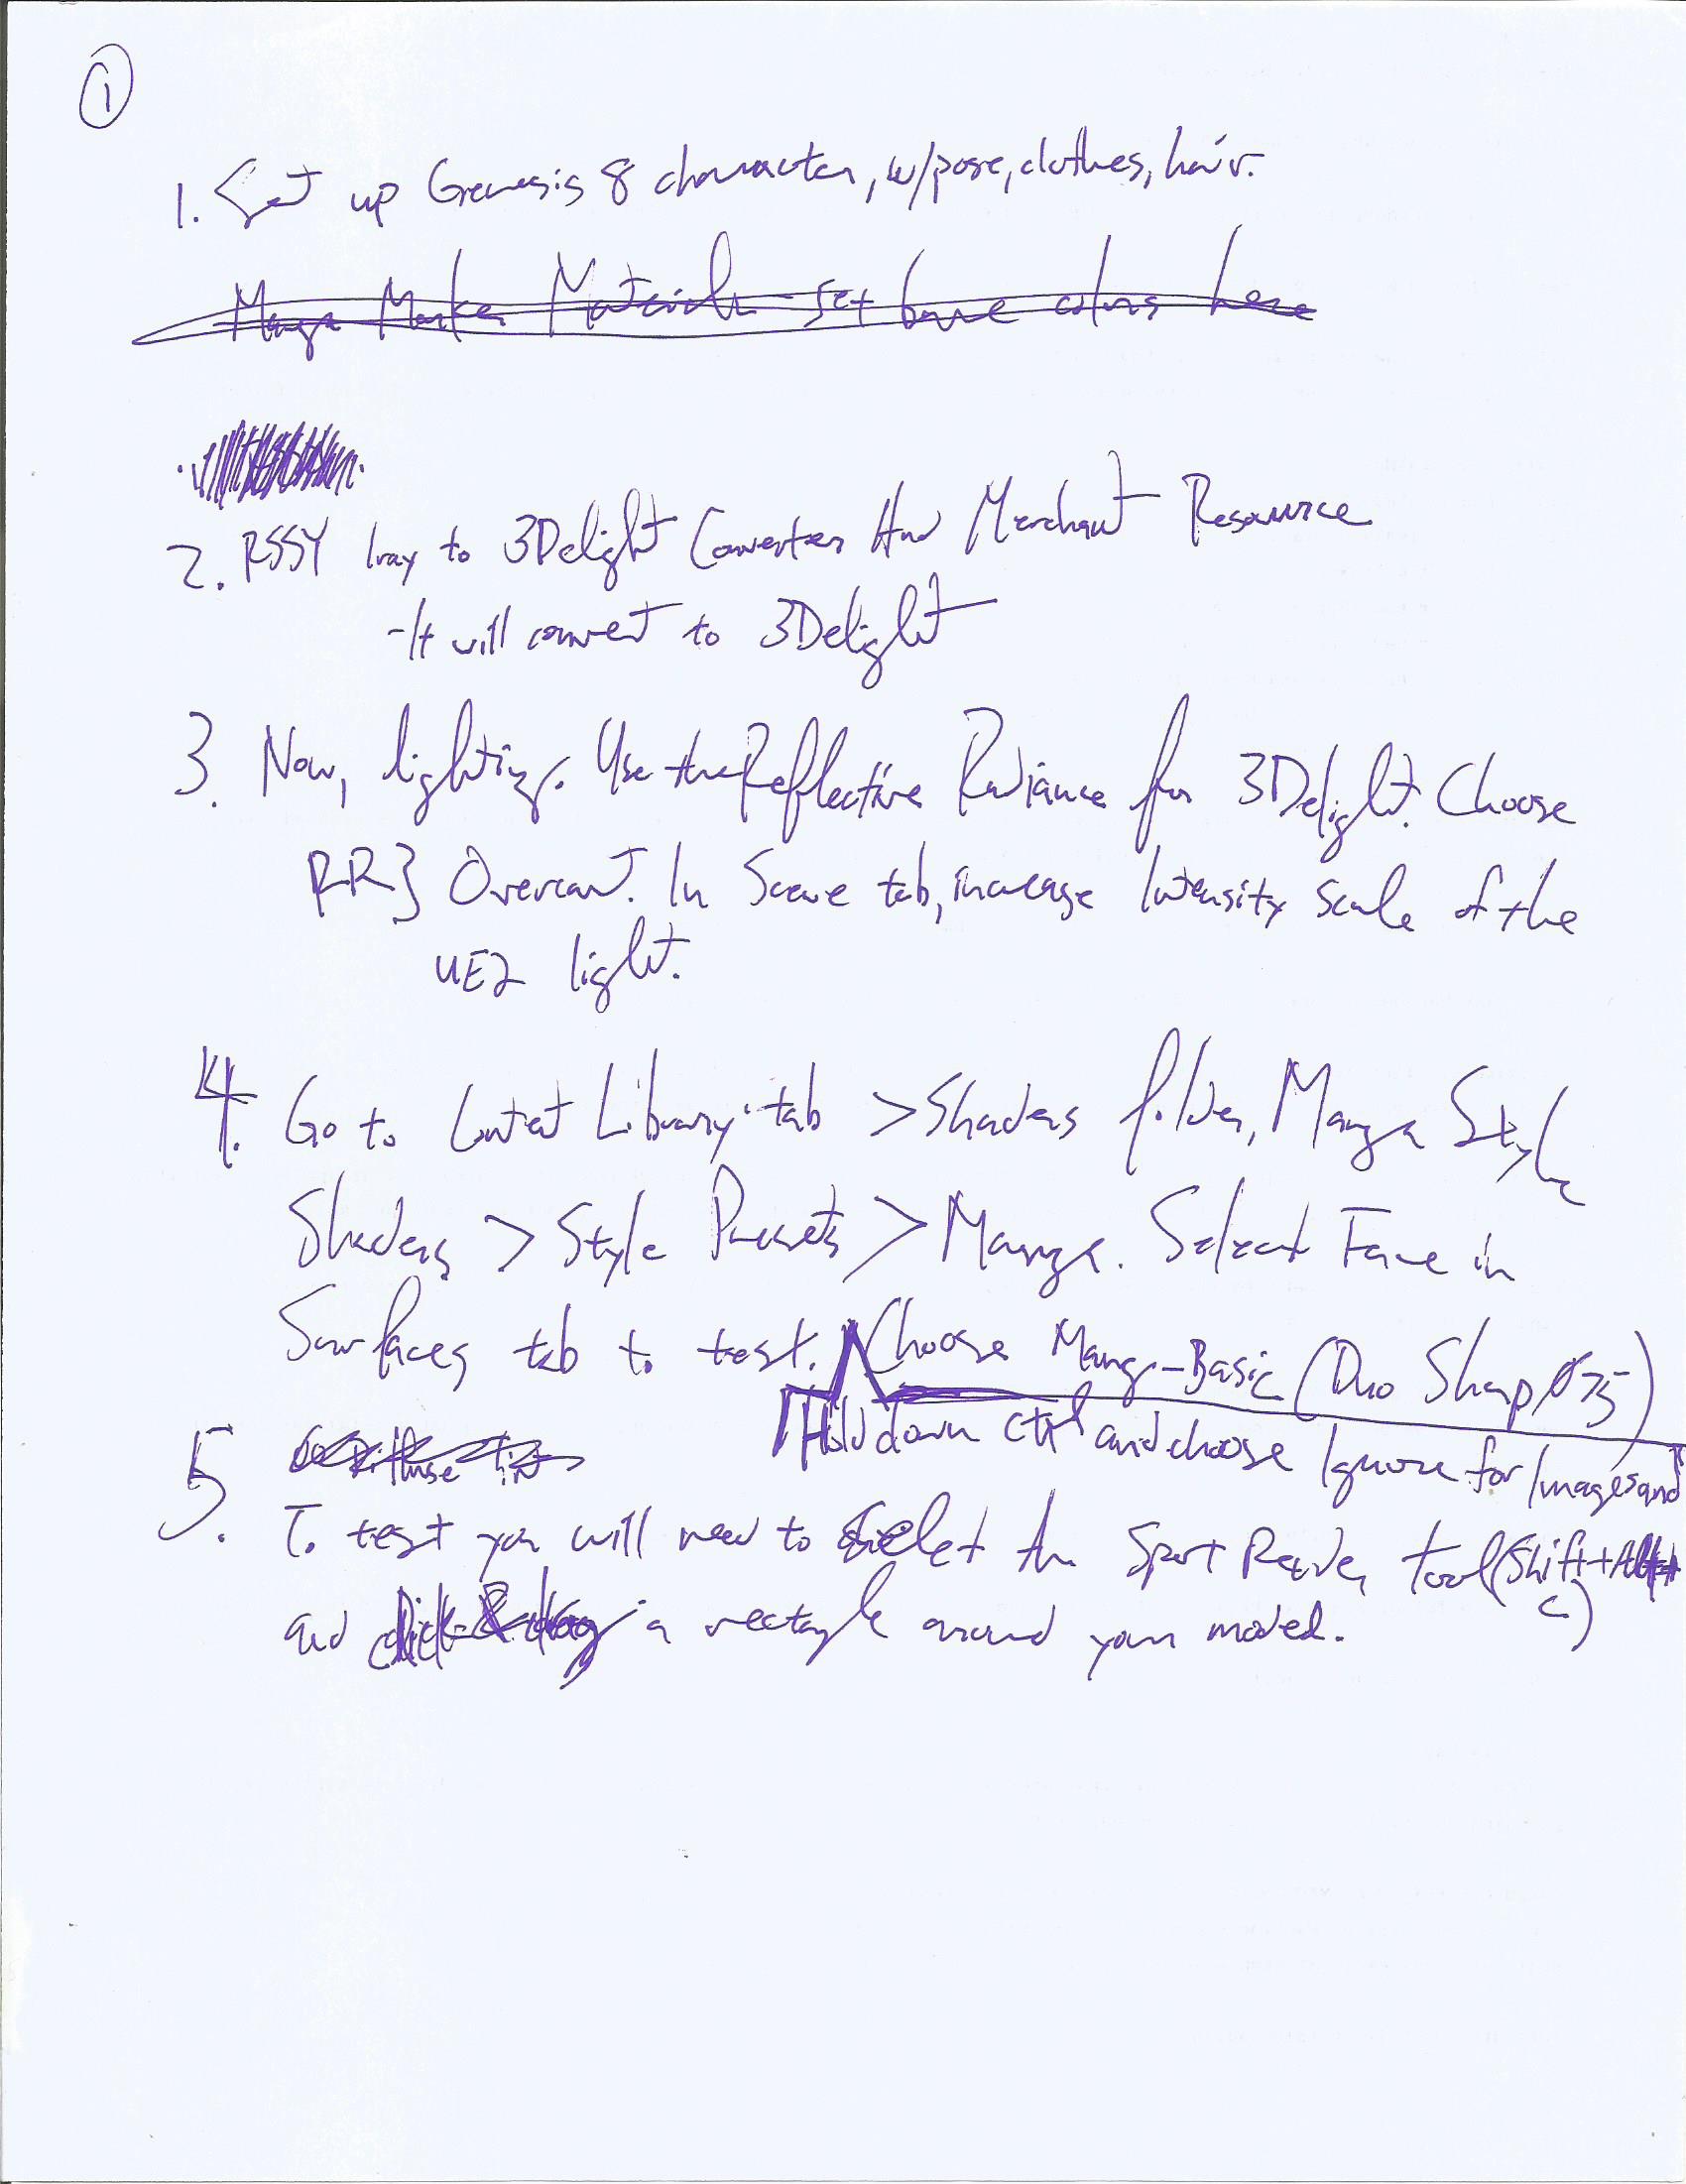 1
1. Set up Genesis 8 character, w/pose, clothes, hair.
Manga Maker Materials - set base colors here
2. RSSY Iray to 3Delight Converter And Merchant Resource
-It will convert to 3Delight
3. Now, lighting. Use the Reflective Radiance for 3Delight. Choose
RR3 Overcast. In Scene tab, increase Intensity Scale of the
UE2 light.
4. Go to Content Library tab > Shaders folder, Manga Style
Shaders > Style Presets > Manga. Select Face in
Surfaces tab to test. Choose Manga-Basic (Duo Sharp, 075)
Hold down ctrl and choose Ignore for Images and
5. Diffuse
To test you will need to select the Spot Render tool (Shift+Alt+
C)
and click & drag a rectangle around your model.